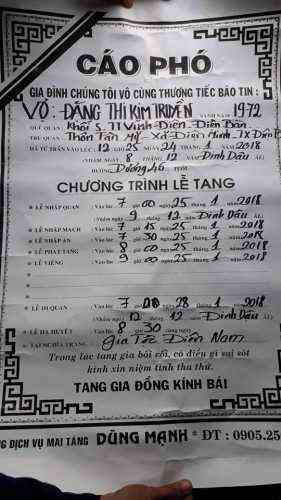 CÁO PHÓ
GIA ĐÌNH CHÚNG TÔI VÔ CÙNG THƯƠNG TIẾC BÁO TIN :
VỢ: ĐẶNG THỊ KIM TRUYỀN SANH NĂM 1972
QUÊ QUÁN Khối 5, TT Vĩnh Điện, Điện Bàn
TRÚ QUÁN Thôn Tân Mỹ Xã Điện Minh TX Điện B
ĐÃ TỪ TRẦN VÀO LÚC : 12 GIỜ 25 NGÀY 24 THÁNG 1 NĂM 2018
(NHẰM NGÀY 8 THÁNG 12 NĂM Đinh Dậu ÂL)
HƯỞNG Dương 46 TUỔI
CHƯƠNG TRÌNH LỄ TANG
LỄ NHẬP QUAN : Vào lúc 7 giờ 00 ngày 25 tháng 1 năm 2018
(Nhằm ngày 9 tháng 12 năm Đinh Dậu ÂL)
LỄ NHẬP MẠCH : Vào lúc 7 giờ 15 ngày 25 tháng 1 năm 2018
LỄ NHẬP ÁN : Vào lúc 7 giờ 30 ngày 25 tháng 1 năm 2018
LỄ PHÁT TANG : Vào lúc 8 giờ 00 ngày 25 tháng 1 năm 2018
LỄ VIẾNG : Vào lúc 9 giờ 00 ngày 25 tháng 1 năm 2018
LỄ DI QUAN : Vào lúc 7 giờ ngày 28 tháng 1 năm 2018
(Nhằm ngày 12 tháng 12 năm Đinh Dậu ÂL)
LỄ HẠ HUYỆT : Vào lúc 8 giờ 30 cùng ngày
TẠI NGHĨA TRANG : Gia Tộc Điện Nam
Trong lúc tang gia bối rối, có điều gì sai sót
kính xin niệm tình tha thứ.
TANG GIA ĐỒNG KÍNH BÁI
DỊCH VỤ MAI TÁNG DŨNG MẠNH * ĐT : 0905.25